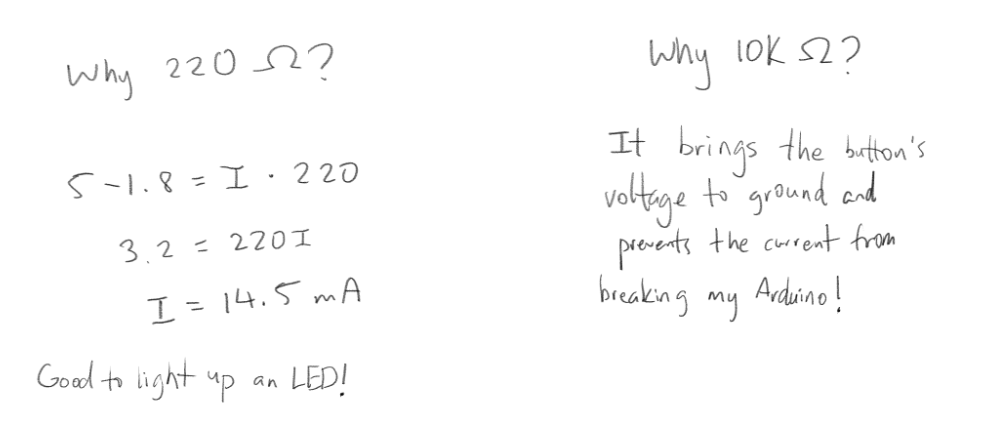 Why 220 Ω?
5-1.8 = I · 220
3.2 = 220I
I = 14.5 mA
Good to light up an LED!
Why 10K Ω?
It brings the button's
voltage to ground and
prevents the current from
breaking my Arduino!